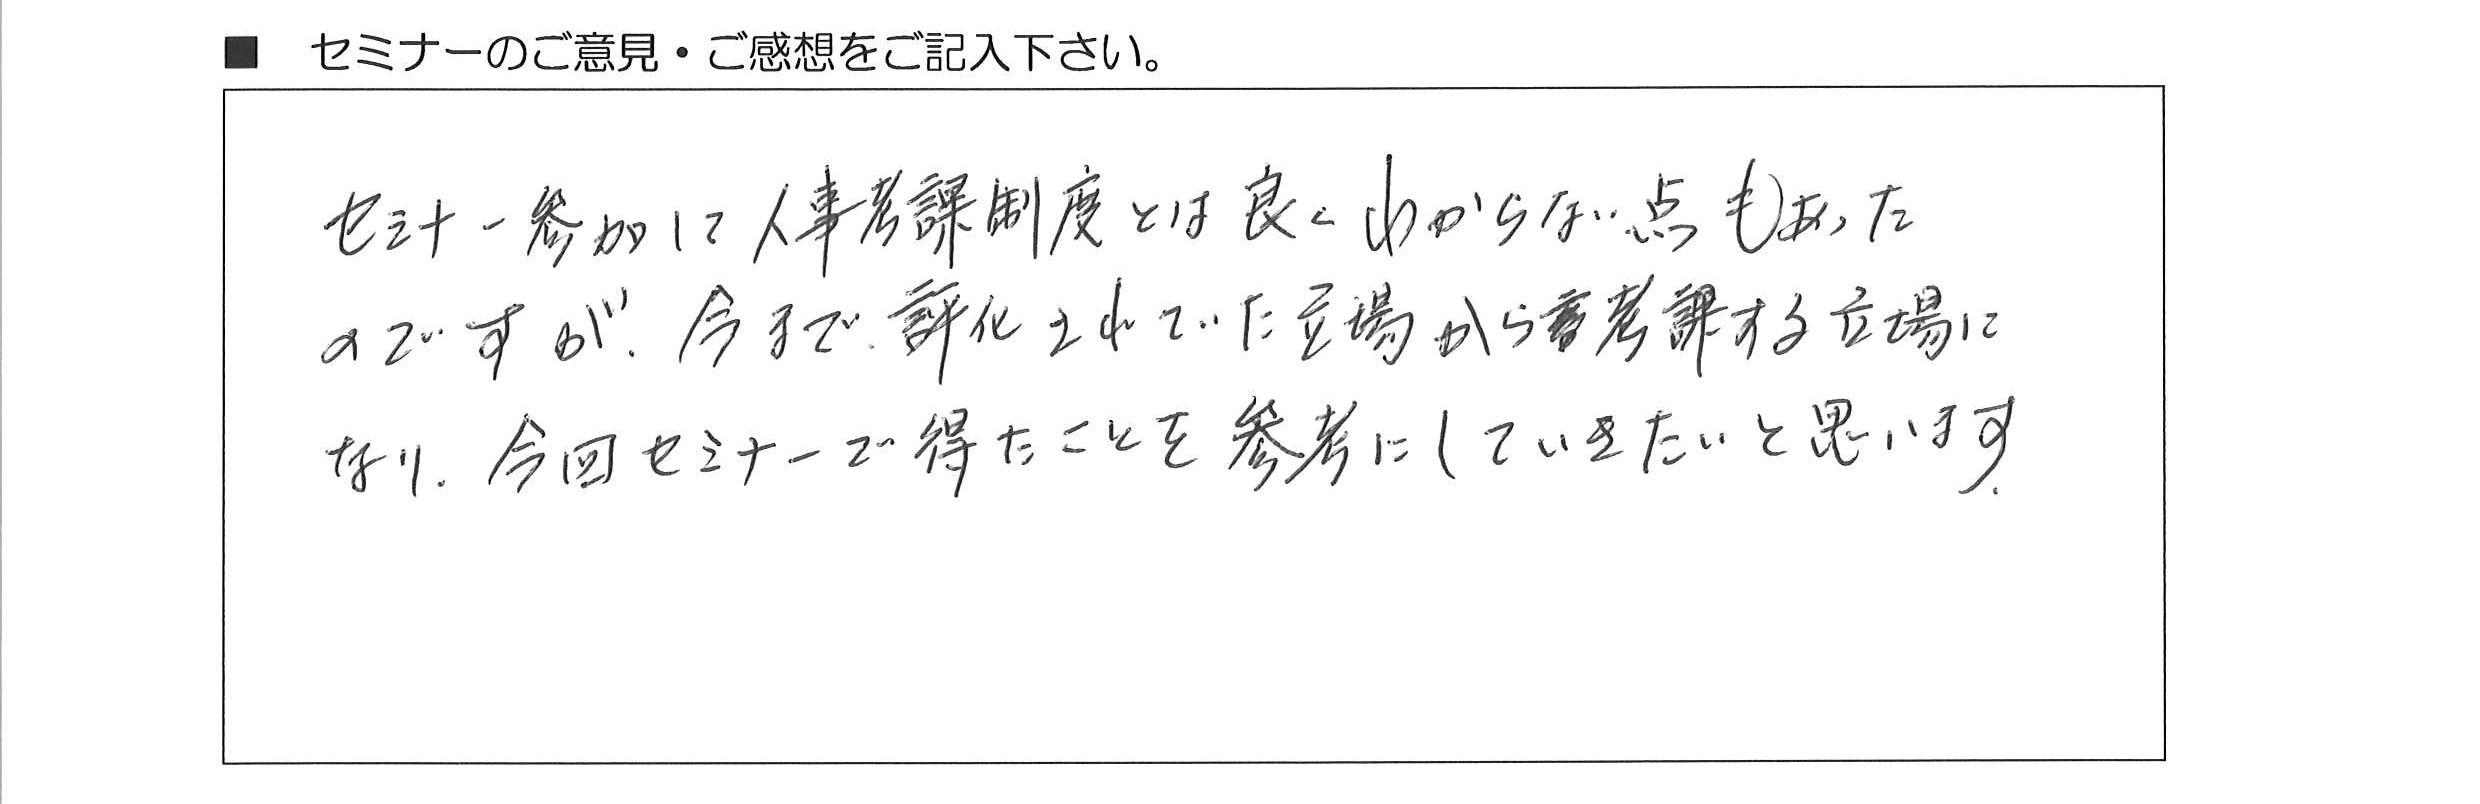 ■ セミナーのご意見・ご感想をご記入下さい。
セミナー参加して人事考課制度とは良くわからない点もあった
のですが、今まで、評化されていた立場から考課する立場に
なり、今回セミナーで得たことを参考にしていきたいと思います。